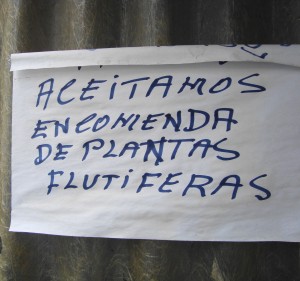 ACEITAMOS
ENCOMENDA
DE PLANTAS
FLUTIFERAS